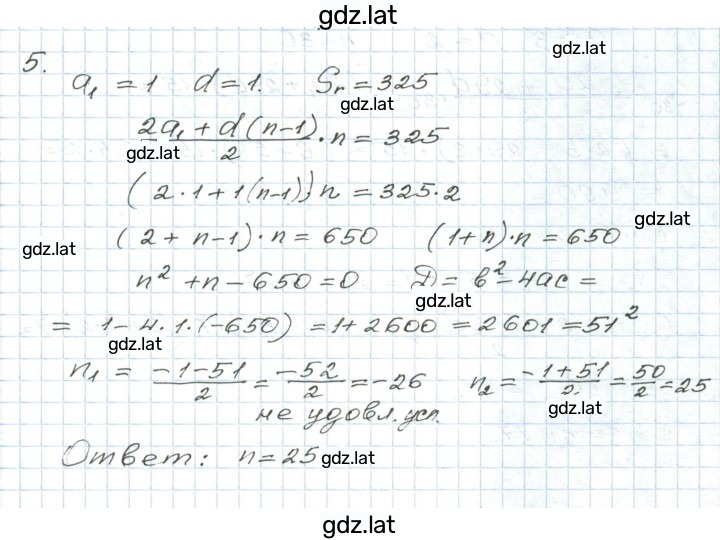 gdz.lat
gdz.lat
5. a₁ = 1 d = 1. Sₙ = 325
gdz.lat
(2a₁ + d(n-1))/2 · n = 325
gdz.lat
(2·1+1(n-1))n = 325·2
gdz.lat
(2+ n-1)·n = 650 (1+n)·n = 650
gdz.lat
n² + n - 650 = 0 D = b² - 4ac =
gdz.lat
= 1-4·1·(-650) = 1+2600 = 2601 = 51²
gdz.lat
n₁ = (-1-51)/2 = (-52)/2 = -26 n₂ = (-1+51)/2 = 50/2 = 25
не удовл. усл.
gdz.lat
Ответ: n = 25
gdz.lat
gdz.lat